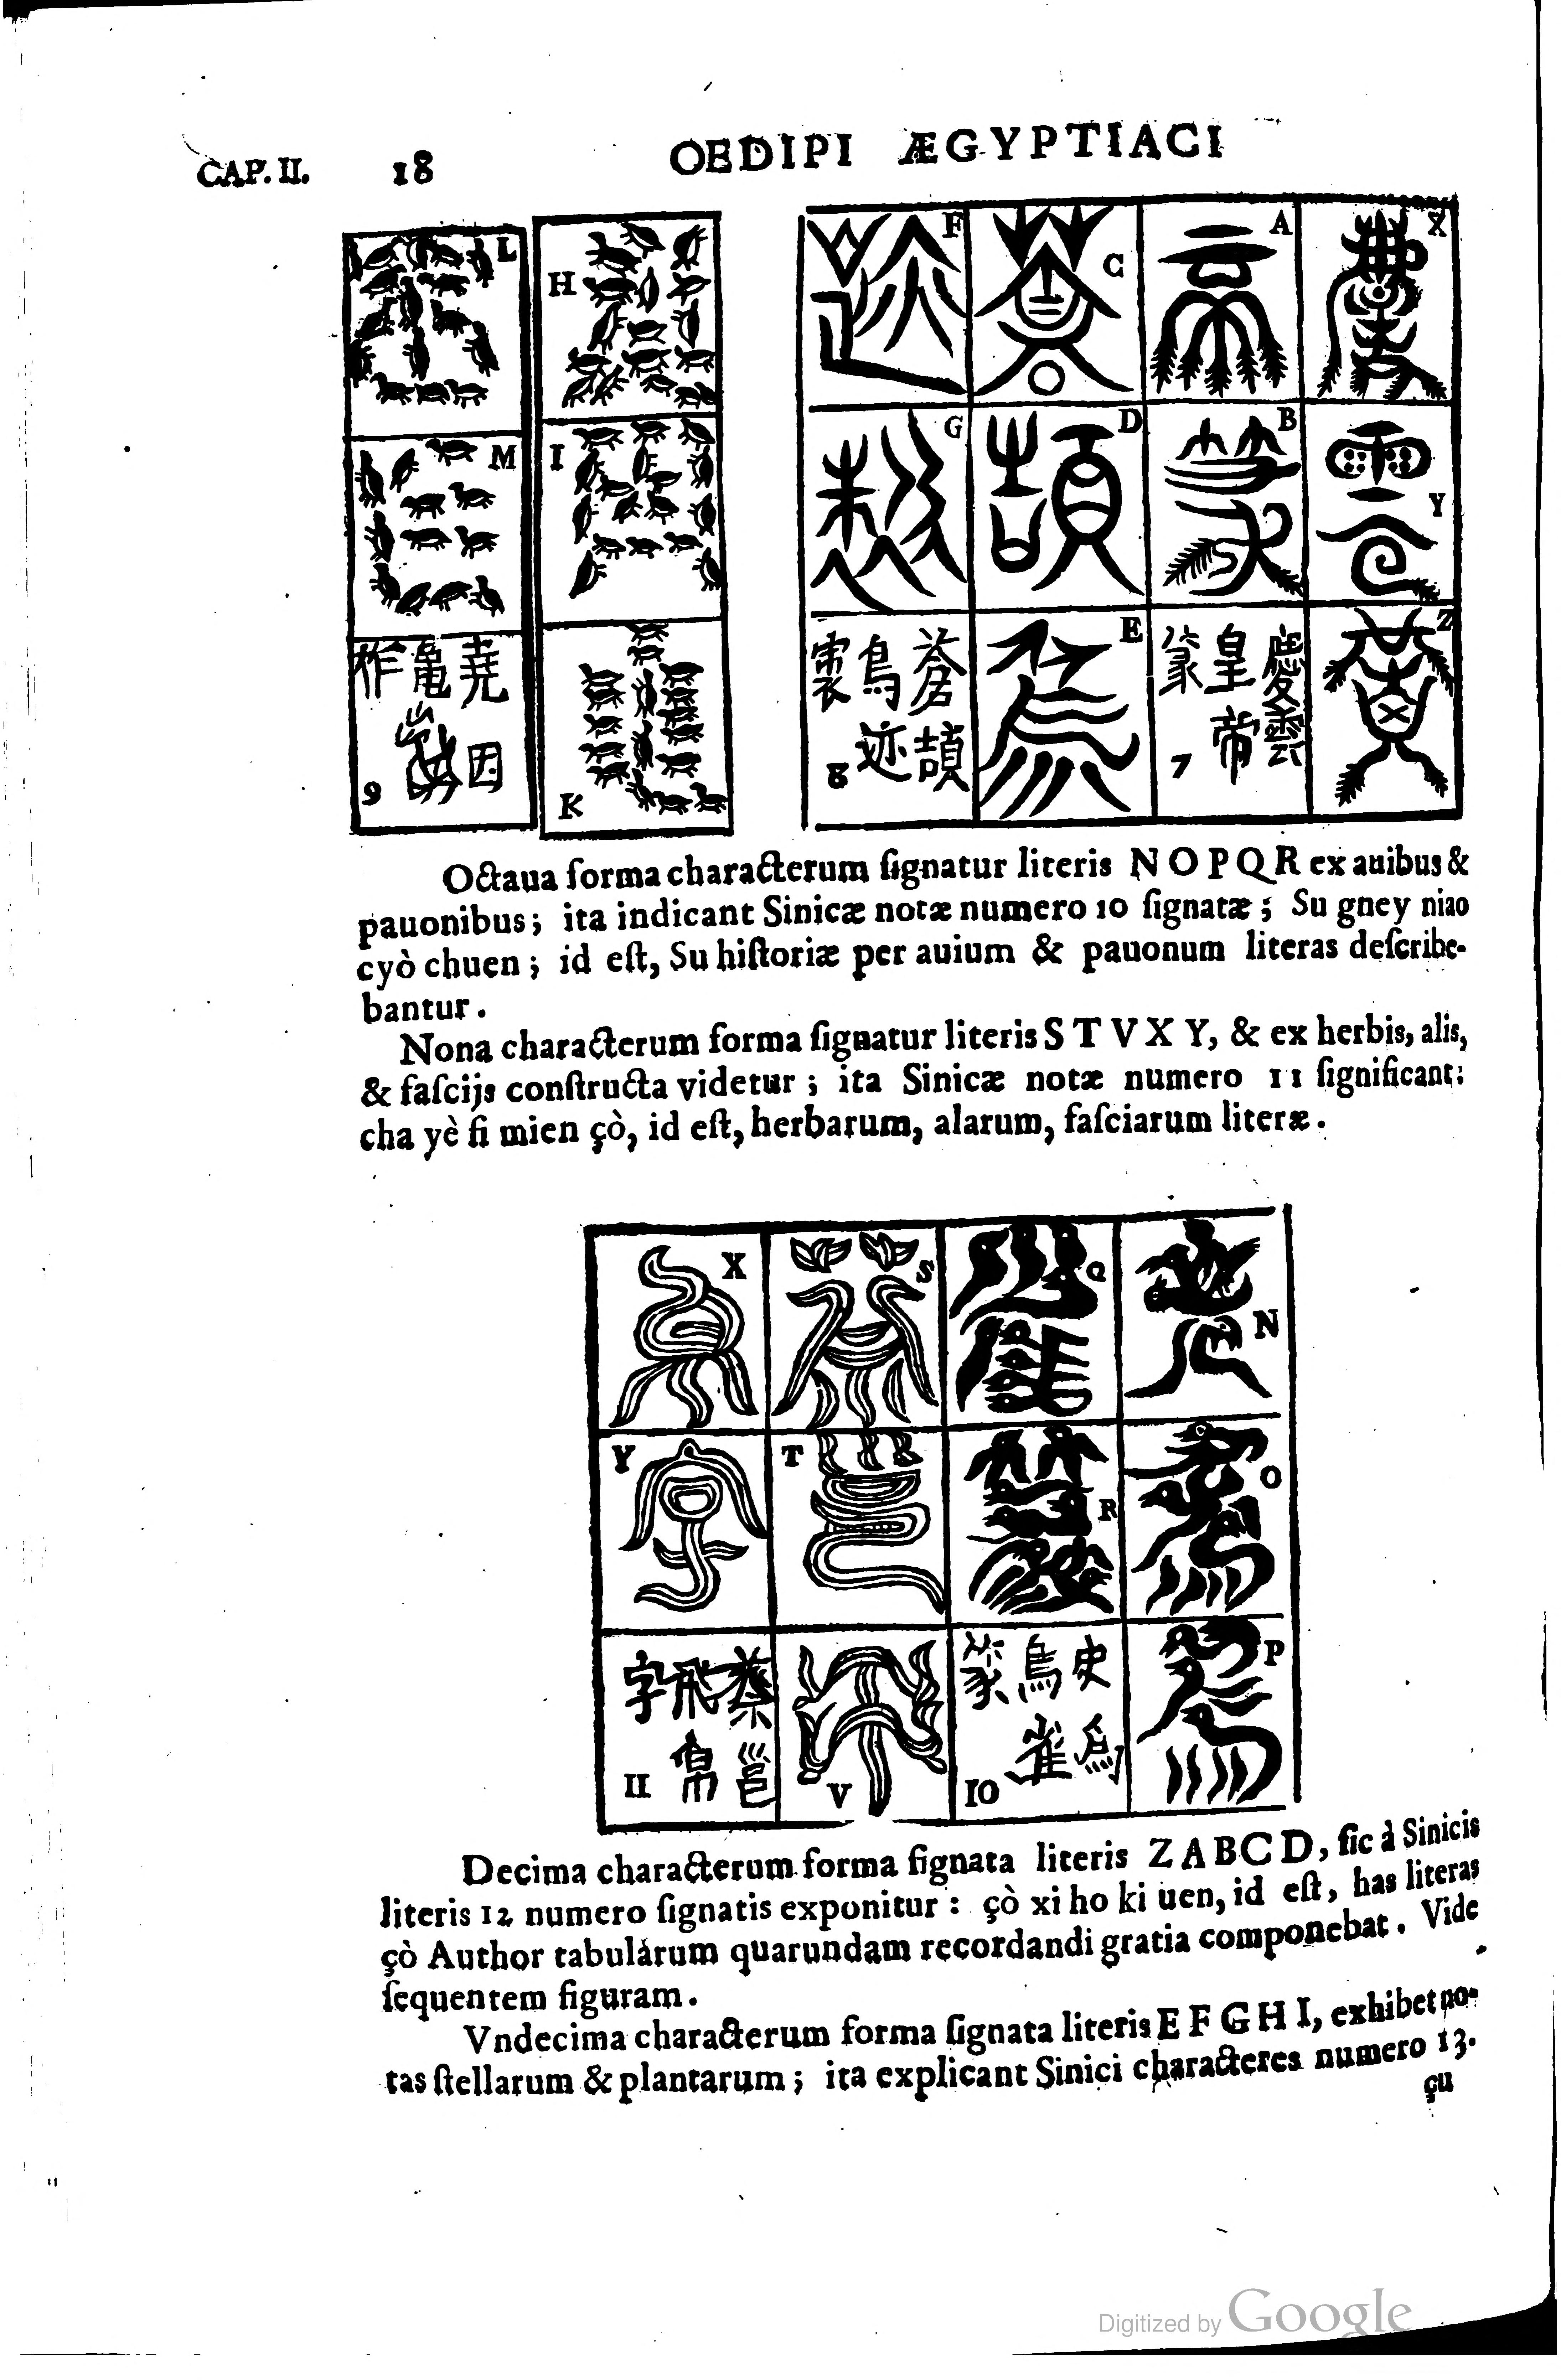 CAP. II. 18 OEDIPI ÆGYPTIACI
L
H
M
I
K
9
F
C
A
X
G
D
B
Y
E
Z
堯
龜
因
蒼
頡
鳥
迹
8
慶
雲
皇
帝
篆
7
Octaua forma characterum ſignatur literis N O P Q R ex auibus &
pauonibus; ita indicant Sinicæ notæ numero 10 ſignatæ; Su gney niao
cyò chuen; id eſt, Su hiſtoriæ per auium & pauonum literas deſcribe-
bantur.
Nona characterum forma ſignatur literis S T V X Y, & ex herbis, alis,
& faſcijs conſtructa videtur; ita Sinicæ notæ numero 11 ſignificant:
cha yè fi mien çò, id eſt, herbarum, alarum, faſciarum literæ.
X
S
Q
N
Y
T
R
O
V
P
史
鳥
雀
篆
10
蔡
邕
飛
帛
字
11
Decima characterum forma ſignata literis Z A B C D, ſic à Sinicis
literis 12 numero ſignatis exponitur: çò xi ho ki uen, id eſt, has literas
çò Author tabulárum quarundam recordandi gratia componebat. Vide
ſequentem figuram.
Vndecima characterum forma ſignata literis E F G H I, exhibet no-
tas ſtellarum & plantarum; ita explicant Sinici characteres numero 13.
çu
Digitized by Google